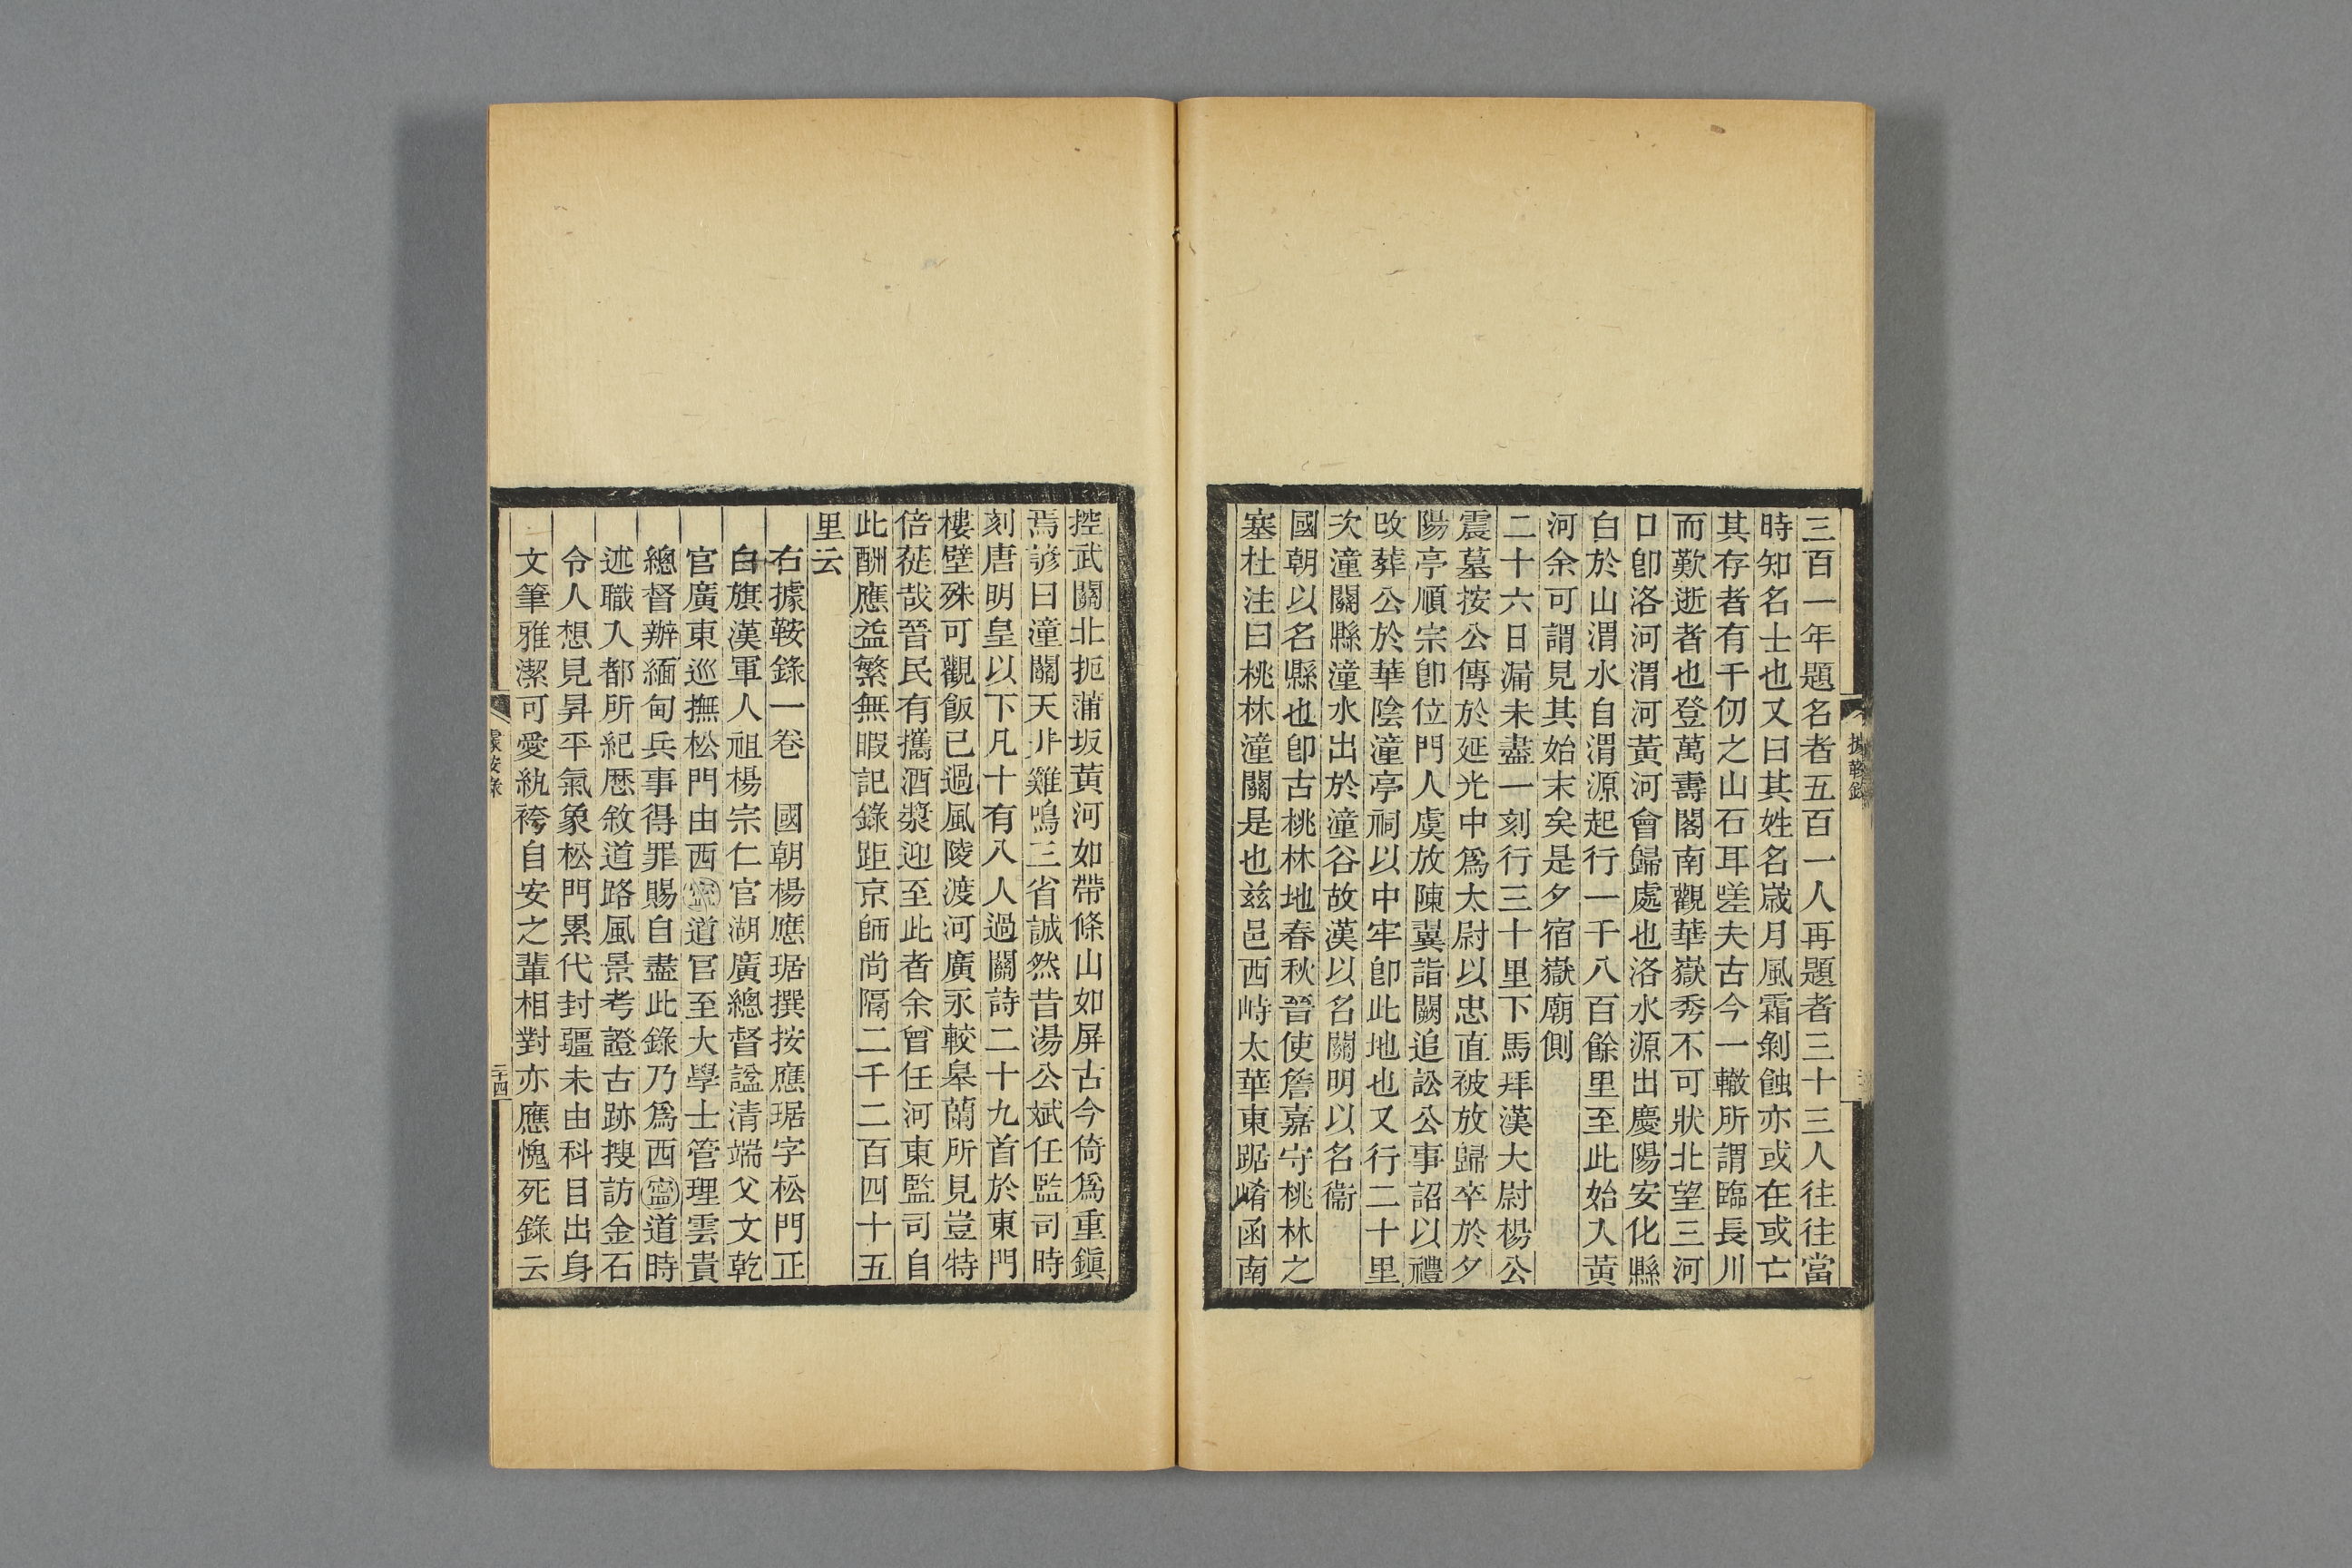 三百一年題名者五百一人再題者三十三人往往當
時知名士也又曰其姓名歲月風霜剝蝕亦或在或亡
其存者有千仞之山石耳嗟夫古今一轍所謂臨長川
而歎逝者也登萬壽閣南觀華嶽秀不可狀北望三河
口卽洛河渭河黃河會歸處也洛水源出慶陽安化縣
白於山渭水自渭源起行一千八百餘里至此始入黃
河余可謂見其始末矣是夕宿嶽廟側
二十六日漏未盡一刻行三十里下馬拜漢大尉楊公
震墓按公傳於延光中爲太尉以忠直被放歸卒於夕
陽亭順宗卽位門人虞放陳翼詣闕追訟公事詔以禮
改葬公於華陰潼亭祠以中牢卽此地也又行二十里
次潼關縣潼水出於潼谷故漢以名關明以名衞
國朝以名縣也卽古桃林地春秋晉使詹嘉守桃林之
塞杜注曰桃林潼關是也兹邑西峙太華東踞崤函南
據鞍錄
控武關北扼蒲坂黃河如帶條山如屏古今倚爲重鎭
焉諺曰潼關天非雞鳴三省誠然昔湯公斌任監司時
刻唐明皇以下凡十有八人過關詩二十九首於東門
樓壁殊可觀飯已過風陵渡河廣永較皋蘭所見豈特
倍蓰哉晉民有攜酒漿迎至此者余曾任河東監司自
此酬應益繁無暇記錄距京師尚隔二千二百四十五
里云
右據鞍錄一卷　國朝楊應琚撰按應琚字松門正
白旗漢軍人祖楊宗仁官湖廣總督諡清端父文乾
官廣東巡撫松門由西寧道官至大學士管理雲貴
總督辦緬甸兵事得罪賜自盡此錄乃爲西寧道時
述職入都所紀歷敘道路風景考證古跡搜訪金石
令人想見昇平氣象松門累代封疆未由科目出身
文筆雅潔可愛紈袴自安之輩相對亦應愧死錄云
據鞍錄
二十四